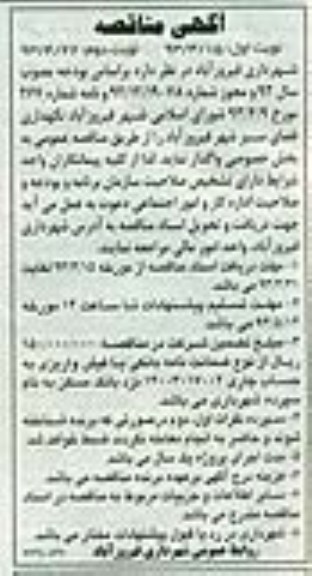 آگهی مناقصه
نوبت اول: ۹۳/۳/۱۵ نوبت دوم:
شهرداری فیروزآباد در نظر دارد براساس بودجه مصوب
سال ۹۳ و مجوز شماره و نامه شماره
مورخ شورای اسلامی شهر فیروزآباد نگهداری
فضای سبز شهر فیروزآباد را از طریق مناقصه عمومی به
بخش خصوصی واگذار نماید. لذا از کلیه پیمانکاران واجد
شرایط دارای تشخیص صلاحیت سازمان برنامه و بودجه و
صلاحیت اداره کار و امور اجتماعی دعوت به عمل می آید
جهت دریافت و تحویل اسناد مناقصه به آدرس شهرداری
فیروزآباد، واحد امور مالی مراجعه نمایند.
۱- مهلت دریافت اسناد مناقصه از مورخه ۹۳/۳/۱۵ لغایت
می باشد.
۲- مهلت تسلیم پیشنهادات تا ساعت ۱۴ مورخه
می باشد.
۳- مبلغ تضمین شرکت در مناقصه
ریال از نوع ضمانت نامه بانکی یا فیش واریزی به
حساب جاری نزد بانک مسکن به نام
سپرده شهرداری می باشد.
۴- سپرده نفرات اول، دوم درصورتی که برنده شناخته
شوند و حاضر به انجام معامله نگردند ضبط خواهد شد.
۵- مدت اجرای پروژه یک سال می باشد.
۶- هزینه درج آگهی برعهده برنده مناقصه می باشد.
۷- سایر اطلاعات و جزییات مربوط به مناقصه در اسناد
مناقصه مندرج می باشد.
۸- شهرداری در رد یا قبول پیشنهادات مختار می باشد.
روابط عمومی شهرداری فیروزآباد